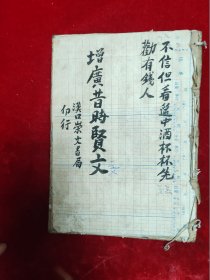 不信但看筵中酒杯杯先
勸有錢人
增廣昔時賢文
漢口崇文書局
印行